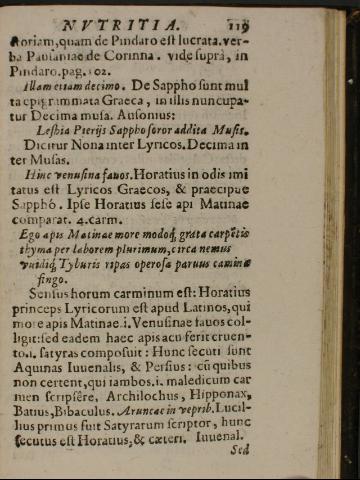 NVTRITIA. 119
ctoriam, quam de Pindaro est lucrata. ver-
ba Pausaniae de Corinna. vide suprà, in
Pindaro. pag. 102.
Illam etiam decimo. De Sappho sunt mul
ta epigrammata Graeca, in illis nuncupa-
tur Decima musa. Ausonius:
Lesbia Pierijs Sappho soror addita Musis.
Dicitur Nona inter Lyricos. Decima in
ter Musas.
Hinc venusina fauos. Horatius in odis imi
tatus est Lyricos Graecos, & praecipue
Sapphó. Ipse Horatius sese api Matinae
comparat. 4. carm.
Ego apis Matinae more modoq́, grata carpētis
thyma per laborem plurimum, circa nemus
vuidiq́, Tyburis ripas operosa paruus camina
fingo.
Sensus horum carminum est: Horatius
princeps Lyricorum est apud Latinos, qui
more apis Matinae. i. Venusinae fauos col-
ligit: sed eadem haec apis acu ferit cruen-
to. i. satyras composuit: Hunc secuti sunt
Aquinas Iuuenalis, & Persius: cū quibus
non certent, qui iambos. i. maledicum car
men scripsêre, Archilochus, Hipponax,
Batius, Bibaculus. Aruncae in veprib. Lucil-
lius primus fuit Satyrarum scriptor, hunc
secutus est Horatius, & caeteri. Iuuenal.
Sed